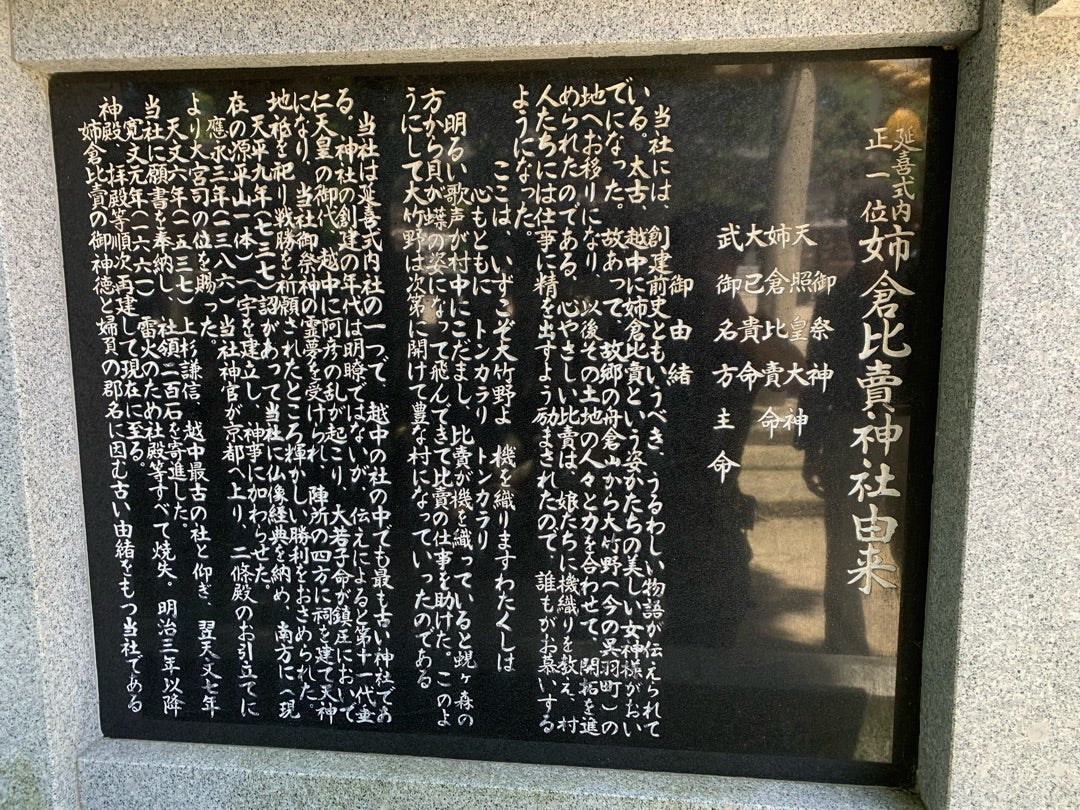 延喜式内
正一位 姉倉比賣神社由来
御祭神
天照皇大神
姉倉比賣命
大己貴命
武御名方主命
御由緒
当社には、創建前史ともいうべき、うるわしい物語が伝えられて
いる。太古、越中に姉倉比賣という姿かたちの美しい女神様がおい
でになった。故あって、故郷の舟倉山から大竹野(今の呉羽町)の
地へお移りになり、以後その土地の人々と力を合わせて、開拓を進
められたのである。心やさしい比賣は、娘たちに機織りを教え、村
人たちには仕事に精を出すよう励まされたので、誰もがお慕いする
ようになった。
ここは いずこぞ大竹野よ 機を織りますわたくしは
心もともに トンカラリ トンカラリ
明るい歌声が村中にこだまし、比賣が機を織っていると蜆ヶ森の
方から貝が蝶の姿になって飛んできて比賣の仕事を助けた。このよ
うにして大竹野は次第に開けて豊な村になっていったのである
当社は延喜式内社の一つで、越中の社の中でも最も古い神社であ
る。神社の創建の年代は明瞭ではないが、伝えによると第十一代垂
仁天皇の御代、越中に阿彦の乱が起こり、大若子命が鎮圧において
になり、当社御祭神の霊夢を受けられ、陣所の四方に祠を建て天神
地祇を祀り戦勝を祈願されたところ輝かしい勝利をおさめられた。
天平九年(七三七)詔があって当社に仏像経典を納め、南方に(現
在の源平山一体)一宇を建立し、神事に加わらせた。
應永三年(一三八六)当社神官が京都へ上り 二條殿のお引立てに
より大宮司の位を賜った。
天文六年(一五三七)上杉謙信、越中最古の社と仰ぎ、翌天文七年
当社に願書を奉納し、社領二百石を寄進した。
寛文元年(一六六一)雷火のため社殿等すべて焼失。明治三年以降
神殿、拝殿等順次再建して現在に至る。
姉倉比賣の御神徳と婦負の郡名に因む古い由緒をもつ当社である